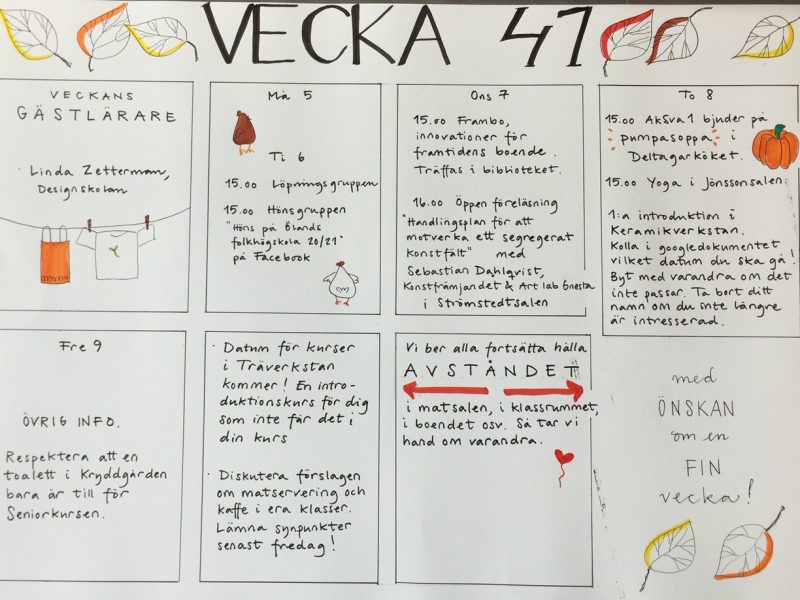 VECKA 41
VECKANS
GÄSTLÄRARE
· Linda Zetterman,
Designskolan
Må 5
Ti 6
15.00 Löpningsgruppen
15.00 Hönsgruppen
"Höns på Ölands
folkhögskola 20/21"
på Facebook
Ons 7
15.00 Frambo,
innovationer för
framtidens boende.
Träffas i biblioteket.
16.00 Öppen föreläsning
"Handlingsplan för att
motverka ett segregerat
konstfält" med
Sebastian Dahlqvist,
Konstfrämjandet & Art lab Gnesta
i Strömstedtsalen
To 8
15.00 AkSva1 bjuder på
pumpasoppa i
Deltagarköket.
15.00 Yoga i Jönssonsalen
1:a introduktion i
Keramikverkstan.
Kolla i googledokumentet
vilket datum du ska gå!
Byt med varandra om det
inte passar. Ta bort ditt
namn om du inte längre
är intresserad.
Fre 9
ÖVRIG INFO.
Respektera att en
toalett i Kryddgården
bara är till för
Seniorkursen.
· Datum för kurser
i Träverkstan
kommer! En intro-
duktionskurs för dig
som inte får det i
din kurs
· Diskutera förslagen
om matservering och
kaffe i era klasser.
Lämna synpunkter
senast fredag!
Vi ber alla fortsätta hålla
AVSTÅNDET
i matsalen, i klassrummet,
i boendet osv. Så tar vi
hand om varandra.
med
ÖNSKAN
om en
FIN
vecka!